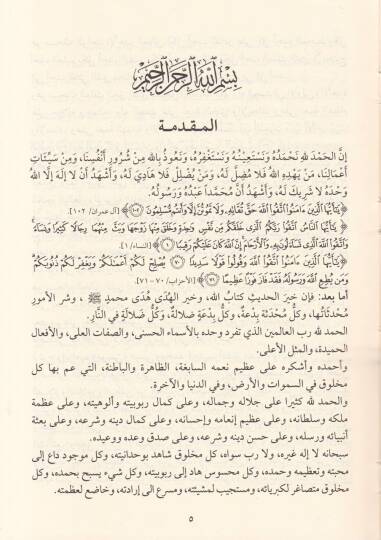 بسم الله الرحمن الرحيم
المقدمة
إِنَّ الحَمْدَ لله نَحْمَدُهُ وَنَسْتَعِينُهُ وَنَسْتَغْفِرُهُ، وَنَعُوذُ بِالله مِنْ شُرُورِ أَنْفُسِنَا، وَمِنْ سَيِّئَاتِ
أَعْمَالِنَا، مَنْ يَهْدِهِ اللهُ فَلا مُضِلَّ لَهُ، وَمَنْ يُضْلِلْ فَلا هَادِيَ لَهُ، وَأَشْهَدُ أَنْ لا إِلَهَ إِلَّا اللهُ
وَحْدَهُ لا شَرِيكَ لَهُ، وَأَشْهَدُ أَنَّ مُحَمَّداً عَبْدُهُ وَرَسُولُهُ.
﴿يَٰٓأَيُّهَا ٱلَّذِينَ ءَامَنُوا۟ ٱتَّقُوا۟ ٱللَّهَ حَقَّ تُقَاتِهِۦ وَلَا تَمُوتُنَّ إِلَّا وَأَنتُم مُّسْلِمُونَ ﴿١٠٢﴾﴾ [آل عمران/ ١٠٢].
﴿يَٰٓأَيُّهَا ٱلنَّاسُ ٱتَّقُوا۟ رَبَّكُمُ ٱلَّذِى خَلَقَكُم مِّن نَّفْسٍ وَٰحِدَةٍ وَخَلَقَ مِنْهَا زَوْجَهَا وَبَثَّ مِنْهُمَا رِجَالًا كَثِيرًا وَنِسَآءً
وَٱتَّقُوا۟ ٱللَّهَ ٱلَّذِى تَسَآءَلُونَ بِهِۦ وَٱلْأَرْحَامَ إِنَّ ٱللَّهَ كَانَ عَلَيْكُمْ رَقِيبًا ﴿١﴾﴾ [النساء/ ١].
﴿يَٰٓأَيُّهَا ٱلَّذِينَ ءَامَنُوا۟ ٱتَّقُوا۟ ٱللَّهَ وَقُولُوا۟ قَوْلًا سَدِيدًا ﴿٧٠﴾ يُصْلِحْ لَكُمْ أَعْمَٰلَكُمْ وَيَغْفِرْ لَكُمْ ذُنُوبَكُمْ
وَمَن يُطِعِ ٱللَّهَ وَرَسُولَهُۥ فَقَدْ فَازَ فَوْزًا عَظِيمًا ﴿٧١﴾﴾ [الأحزاب/ ٧٠-٧١].
أما بعد: فإن خيرَ الحديثِ كتابُ الله، وخيرَ الهُدَى هُدَى محمدٍ ﷺ، وشرَ الأمورِ
مُحْدَثَاتُها، وكلُّ مُحْدَثَةٍ بِدْعَةٌ، وكلَّ بِدْعَةٍ ضلالةٌ، وكُلَّ ضَلالَةٍ في النَّارِ.
الحمد لله رب العالمين الذي تفرد وحده بالأسماء الحسنى، والصفات العلى، والأفعال
الحميدة، والمثل الأعلى.
وأحمده وأشكره على عظيم نعمه السابغة، الظاهرة والباطنة، التي عم بها كل
مخلوق في السموات والأرض، وفي الدنيا والآخرة.
والحمد لله كثيرا على جلاله وجماله، وعلى كمال ربوبيته وألوهيته، وعلى عظمة
ملكه وسلطانه، وعلى عظيم إنعامه وإحسانه، وعلى كمال دينه وشرعه، وعلى بعثة
أنبيائه ورسله، وعلى حسن دينه وشرعه، وعلى صدق وعده ووعيده.
سبحانه لا إله غيره، ولا رب سواه، كل مخلوق شاهد بوحدانيته، وكل موجود داع إلى
محبته وتعظيمه وحمده، وكل محسوس هاد إلى ربوبيته، وكل شيء يسبح بحمده، وكل
مخلوق متصاغر لكبريائه، ومستجيب لمشيئته، ومسرع الى إرادته، وخاضع لعظمته.
٥